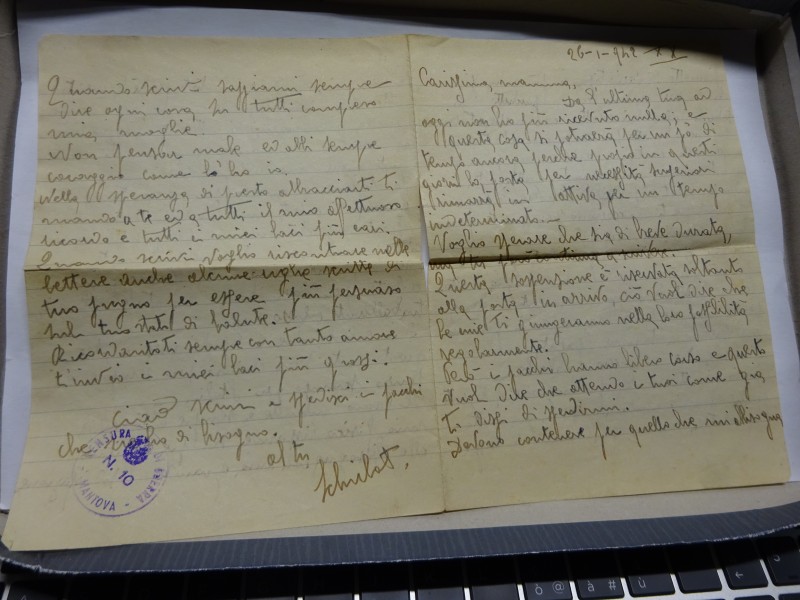 26-1-942 XX
Carissima mamma,
Da l'ultima tua ad
oggi non ho più ricevuto nulla; e
questa cosa si potrarrà per un pò di
tempo ancora perche proprio in questi
giorni la posta per necessità superiori
rimarrà in attiva per un tempo
indeterminato.—
Voglio sperare che sia di breve durata,
Questa sospensione è riservata soltanto
alla posta in arrivo, ciò vuol dire che
le mie ti giungeranno nella loro possibilità
regolarmente.
Però i pacchi hanno libero corso e questo
vuol dire che attendo i tuoi come già
ti dissi di spedirmi.
Devono contenere per quello che mi abbisogna
Quando scrivi sappiami sempre
dire ogni cosa di tutti compreso
mia moglie.
Non pensar male ed abbi sempre
coraggio come lò ho io.
Nella speranza di presto abbracciarti ti
mando a te ed a tutti il mio affettuoso
ricordo e tutti i miei baci più cari.
Quando scrivi voglio riscontrare nelle
lettere anche alcune righe scritte di
tuo pugno per essere più persuaso
sul tuo stato di salute.
Ricordandoti sempre con tanto amore
t'invio i miei baci più grossi.
Ciao scrivi e spedisci i pacchi
che ho di bisogno.
al tuo
CENSURA
N. 10
MANTOVA